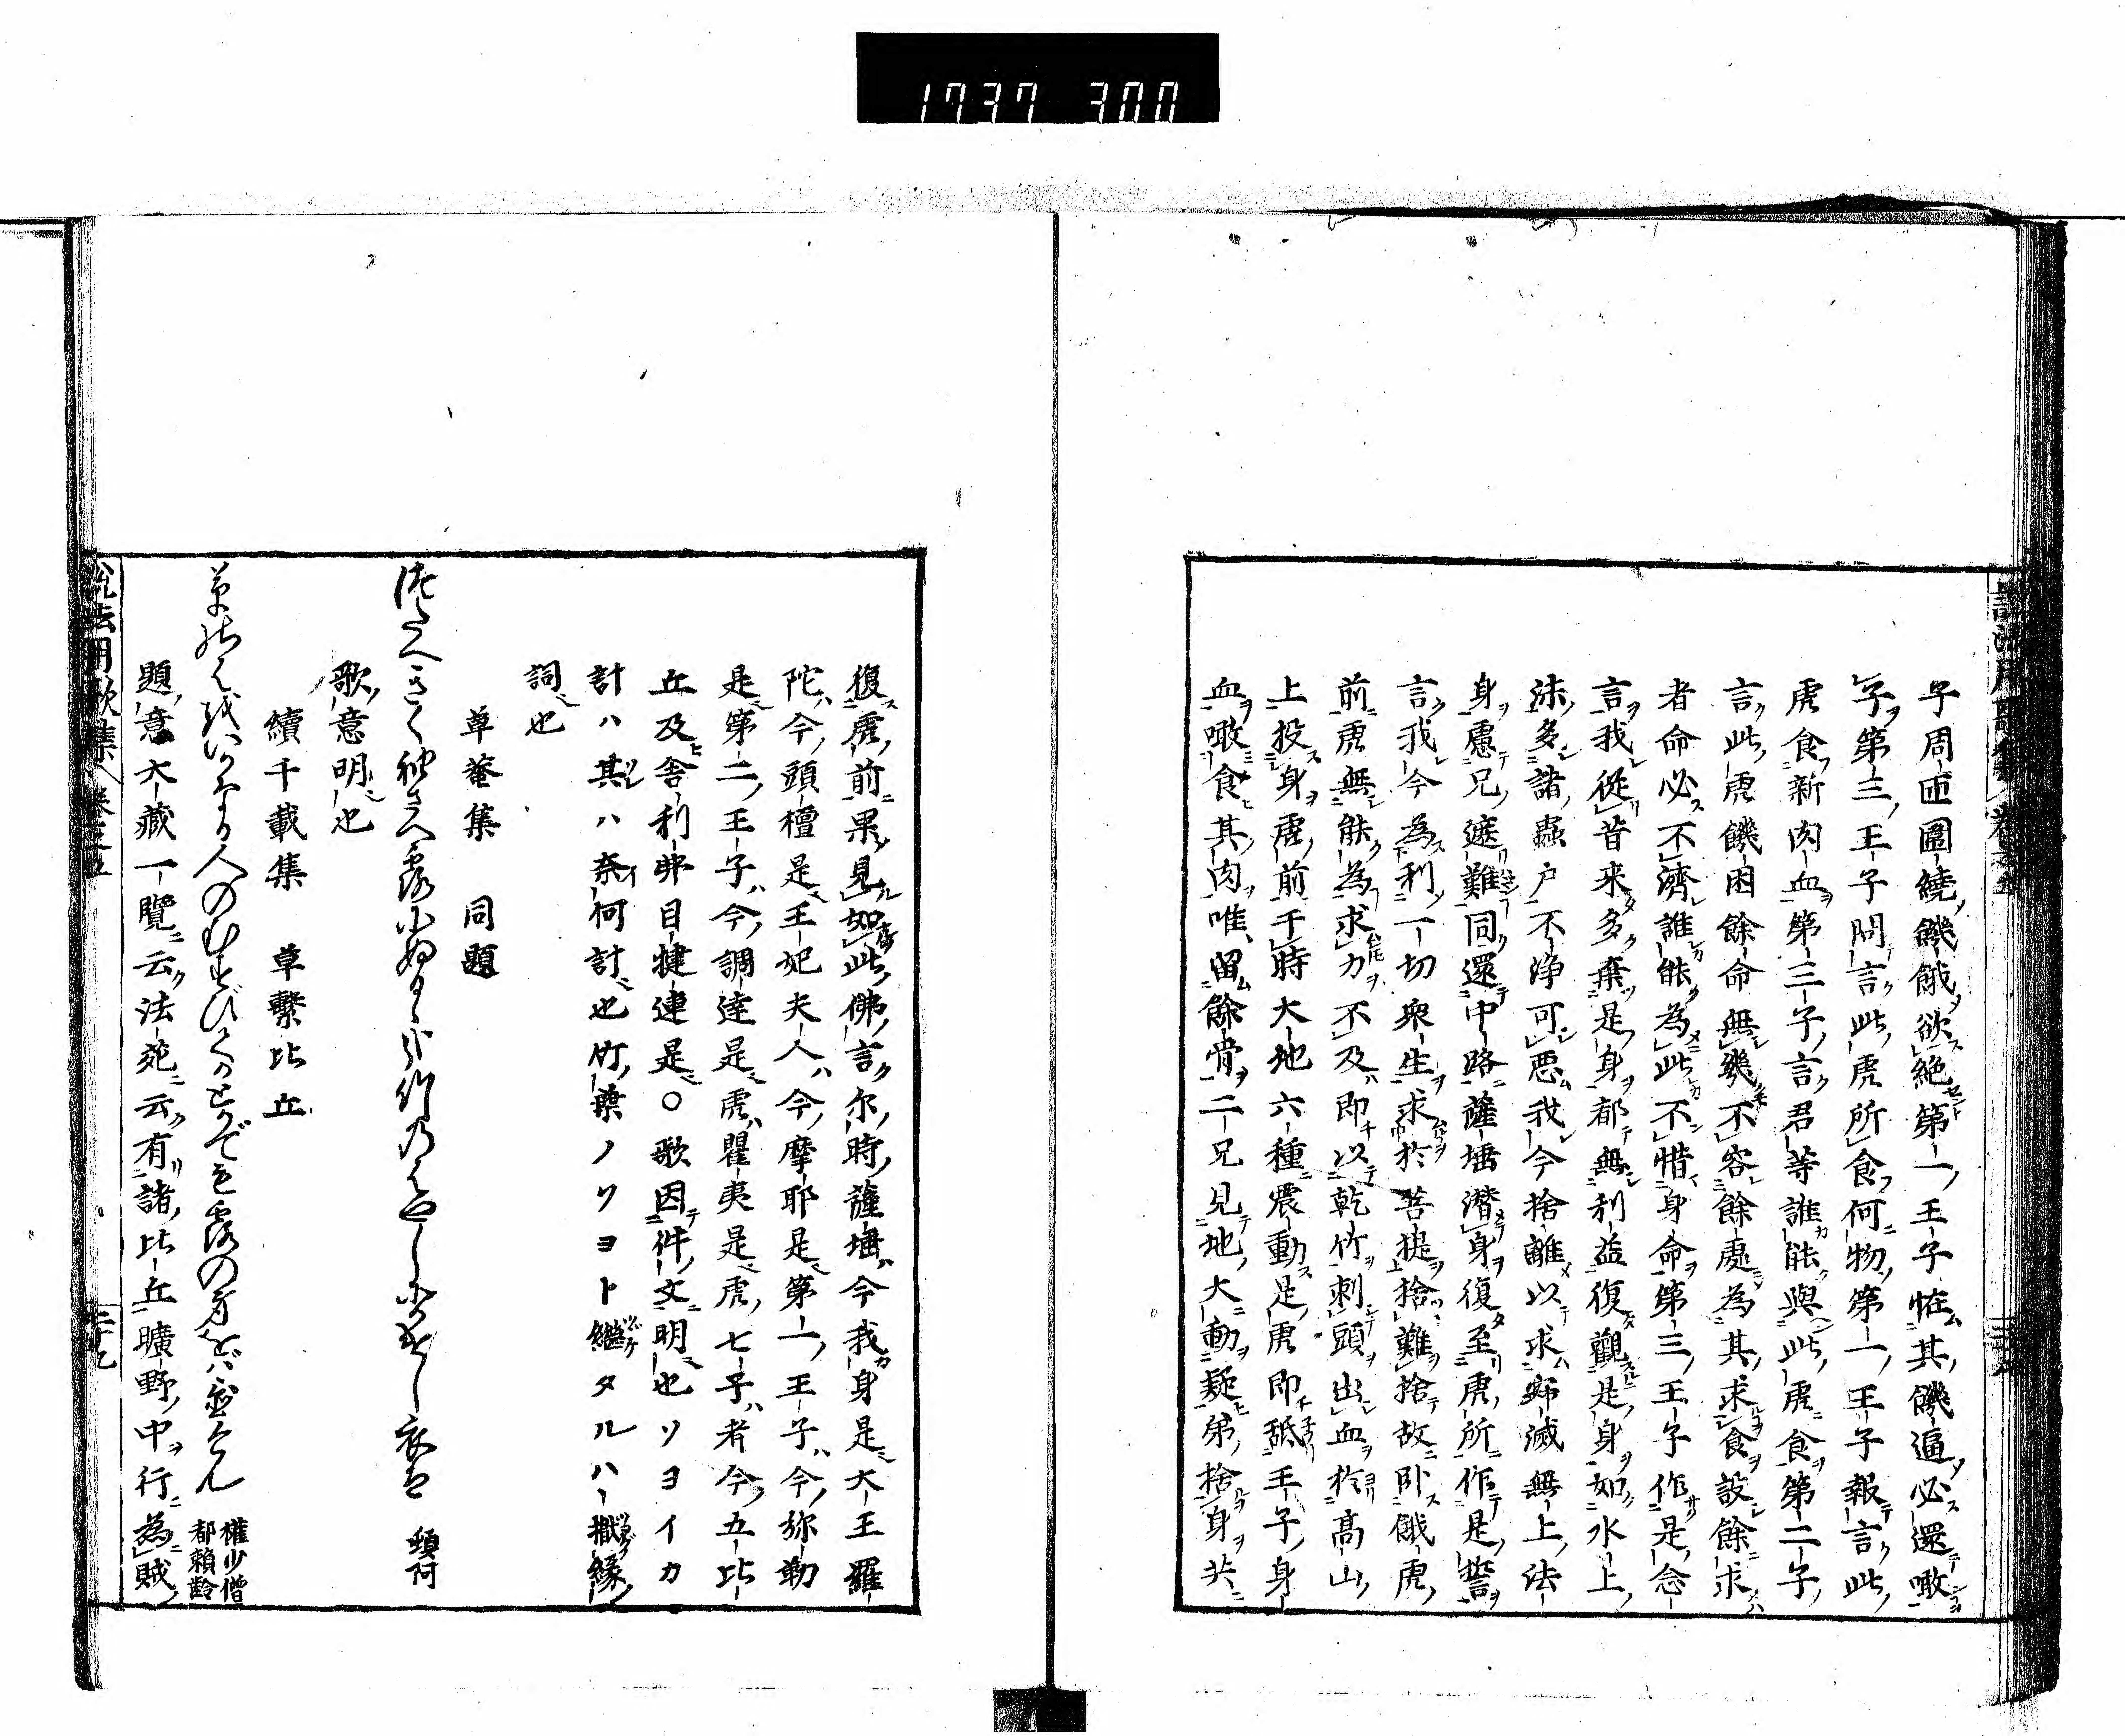 1737 300
子周匝圍繞飢餓欲絶第一王子恠其飢逼必還噉
子第三王子問言此虎所食何物第一王子報言此
虎食新肉血第三子言君等誰能與此虎食第二子
言此虎飢困餘命無幾不容餘處為其求食設餘求
者命必不濟誰能為此不惜身命第三王子作是念
言我從昔来多棄是身都無利益復觀是身如水上
沫多諸蟲户不浄可悪我今捨離以求寂滅無上法
身慮兄遮難同還中路薩埵潜身復至虎所作是誓
言我今為利一切衆生求於菩提捨難捨故卧餓虎
前虎無能為求力不及即以乾竹刺頭出血於高山
上投身虎前于時大地六種震動是虎即舐王子身
血噉食其肉唯留餘骨二兄見地大動疑弟捨身共
復虎前果見如此佛言尓時薩埵今我身是大王羅
陀今頭檀是王妃夫人今摩耶是第一王子今弥勒
是第二王子今調達是虎瞿夷是虎七子者今五比
丘及舎利弗目揵連是〇歌因件文明也ソヨイカ
計ハ其ハ奈何計也竹葉ノソヨト繼タルハ獄縁
詞也
草菴集 同題
頓阿
歌意明也
續千載集 草繫比丘
權少僧都頼齢
題意大藏一覽云法苑云有諸比丘曠野中行為賊
説法用歌集 巻之五